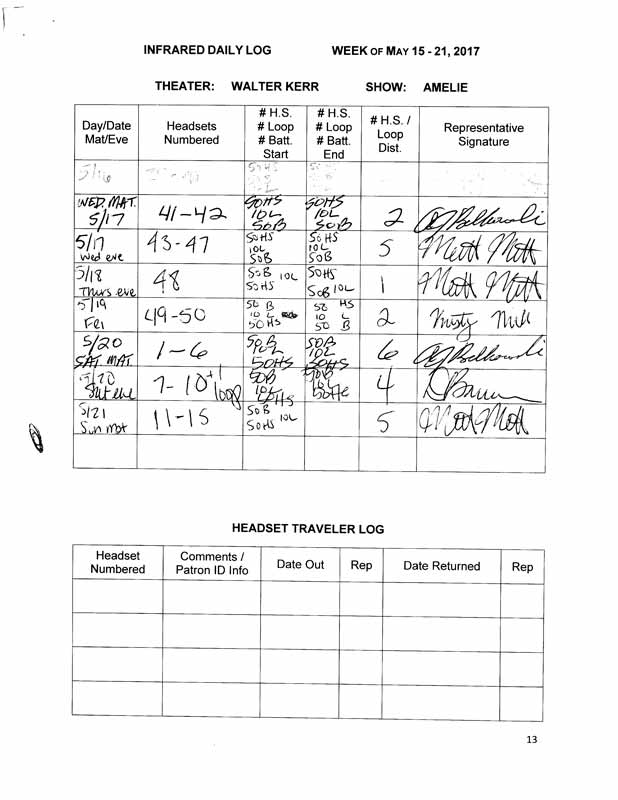 INFRARED DAILY LOG WEEK OF MAY 15 - 21, 2017
THEATER: WALTER KERR SHOW: AMELIE
Day/Date Mat/Eve Headsets Numbered # H.S. # Loop # Batt. Start # H.S. # Loop # Batt. End # H.S. / Loop Dist. Representative Signature
5/16
WED. MAT. 5/17 41-42 50HS 10L 50B 50HS 10L 50B 2
5/17 Wed eve 43-47 50HS 10L 50B 50HS 10L 50B 5 Matt Mott
5/18 Thurs eve 48 50B 10L 50HS 50HS 50B 10L 1 Matt Mott
5/19 Fri 49-50 50 B 10 L 50HS 50 HS 10 L 50 B 2
5/20 SAT. MAT. 1-6 50B 10L 50HS 50B 10L 50HS 6
5/20 Sat eve 7-10 +1 loop 50B 10L 50HS 50B 10L 50HS 4
5/21 Sun mat 11-15 50B 50HS 10L 5 Matt Mott
HEADSET TRAVELER LOG
Headset Numbered Comments / Patron ID Info Date Out Rep Date Returned Rep
13